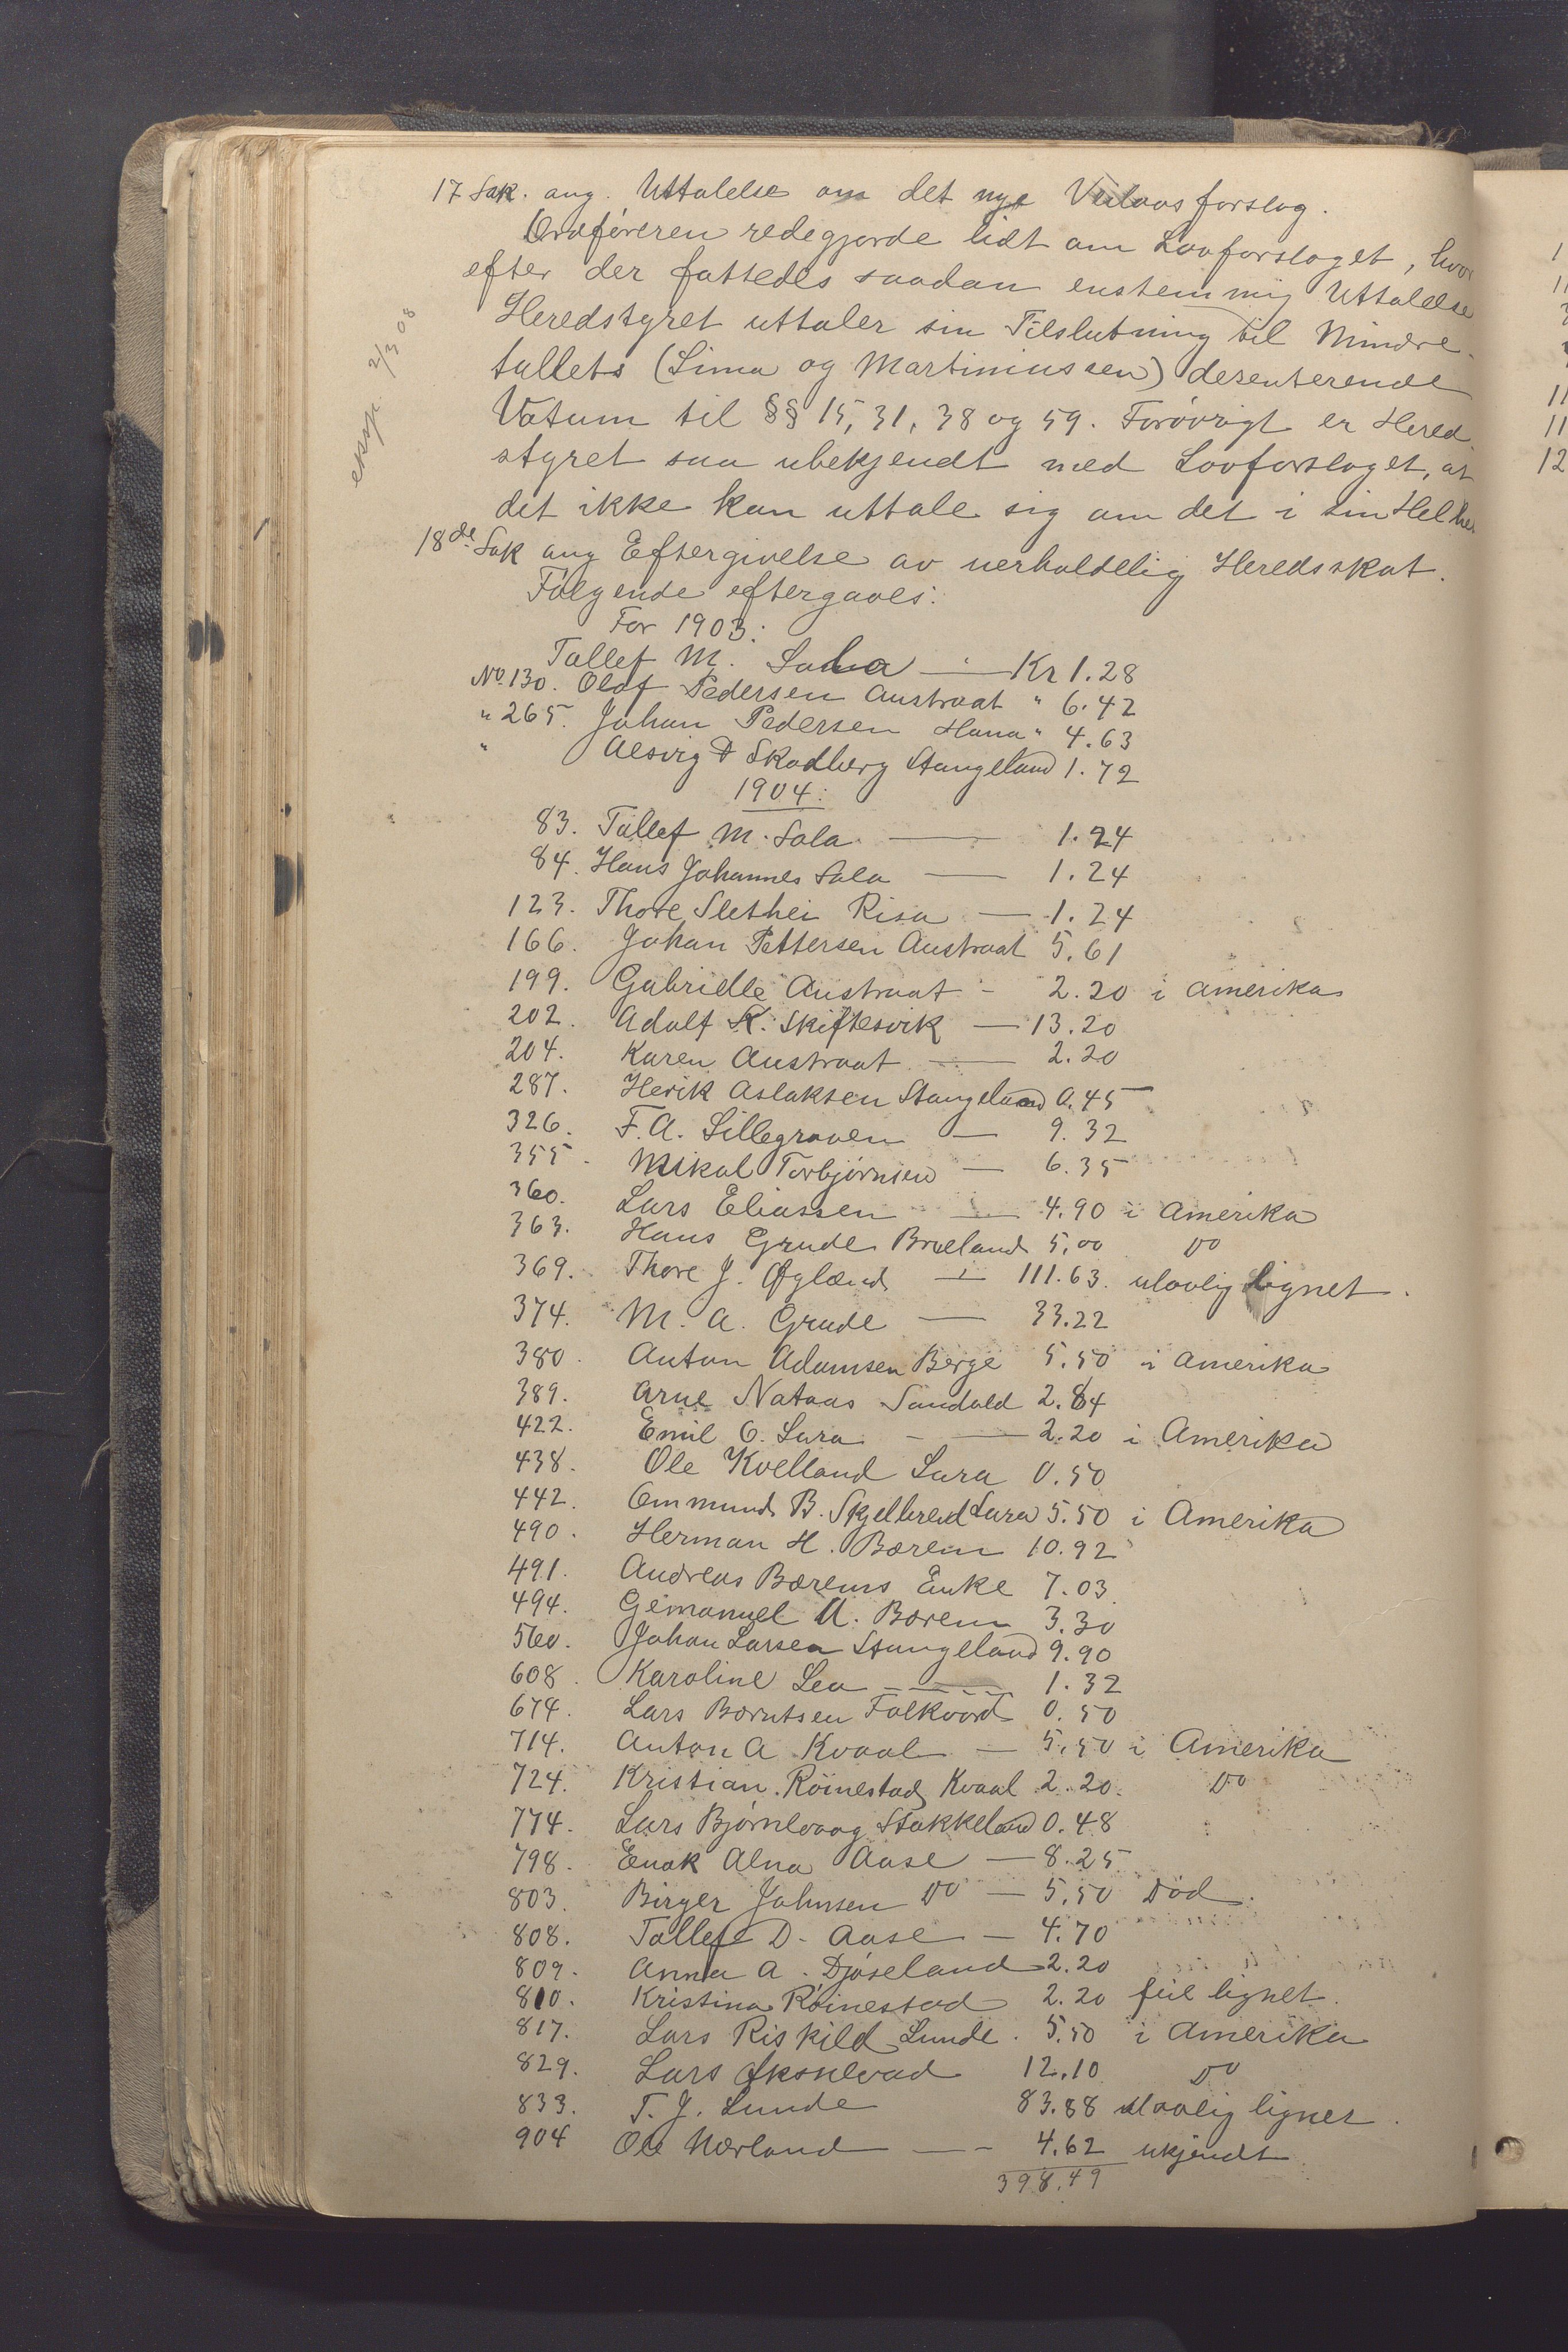 17 Sak. ang. Uttalelse om det nye Veilovsforslag.
Ordføreren redegjorde lidt om Lovforslaget, hvor
efter der fattedes saadan enstemmig Uttalelse
Heredstyret uttaler sin Tilslutning til Mindre-
tallets (Lima og Martiniussen) desenterende
Votum til §§ 15, 31, 38 og 59. Forøvrigt er Hered
styret saa ubekjendt med Lovforslaget, at
det ikke kan uttale sig om det i sin Helhet
eksp. 2/3 08
18de Sak ang Eftergivelse av uerholdelig Heredsskat.
Følgende eftergaves:
For 1903:
Tollef M. Sola — Kr 1.28
No. 130. Olaf Pedersen Austraat " 6.42
" 265. Johan Pedersen Hana " 4.63
" Aesvig & Skadberg Stangeland 1.72
1904:
83. Tollef M. Sola — 1.24
84. Hans Johannes Sola — 1.24
123. Thore Slethei Risa — 1.24
166. Johan Pettersen Austraat 5.61
199. Gabrielle Austraat - 2.20 i Amerika
202. Adolf K. Skiftesvik — 13.20
204. Karen Austraat — 2.20
287. Herik Aslaksen Stangeland 0.45
326. F. A. Lillegraven — 9.32
355. Mikal Torbjørnsen — 6.35
360. Lars Eliassen — 4.90 i Amerika
363. Hans Grude Brueland 5,00 Do
369. Thore J. Øglænd — 111.63. ulovlig lignet.
374. M. A. Grude — 33.22
380. Anton Adamsen Berge 5.50 i Amerika
389. Arne Nataas Sandald 2.84
422. Emil O. Lura - — 2.20 i Amerika
438. Ole Kvelland Lura 0.50
442. Ommund B. Skjelbreid Lura 5.50 i Amerika
490. Herman H. Bærem 10.92
491. Andreas Bærems Enke 7.03
494. Gemanuel A. Bærem 3.30
560. Johan Larsen Stangeland 9.90
608. Karoline Lea — 1.32
674. Lars Berntsen Folkvord 0.50
714. Anton A Kvaal — 5.50 i Amerika
724. Kristian Röinestad Kvaal 2.20. Do
774. Lars Bjørnlvaag Stokkeland 0.48
798. Enok Alna Aase — 8.25
803. Birger Johnsen Do — 5.50 Död.
808. Tollef D. Aase — 4.70
809. Anna A. Djøseland 2.20
810. Kristina Röinestad 2.20 feil lignet.
817. Lars Riskild Lunde. 5.50 i Amerika
829. Lars Øksnevad 12.10 Do
833. T. J. Lunde 83.88 ulovlig lignet.
904 Ole Nærland — 4.62 ukjendt
398.49